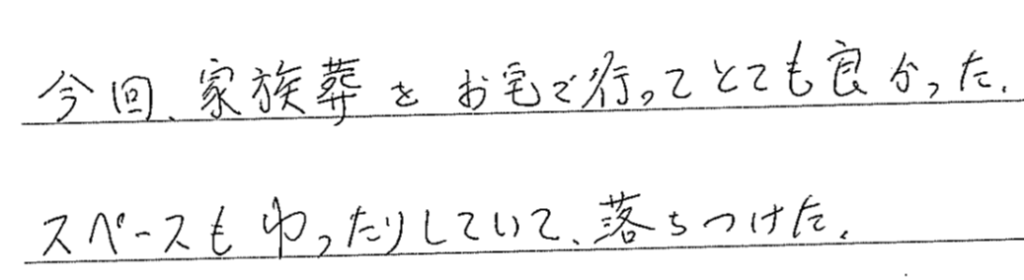 今回、家族葬をお宅で行ってとても良かった.
スペースもゆったりしていて、落ちつけた.